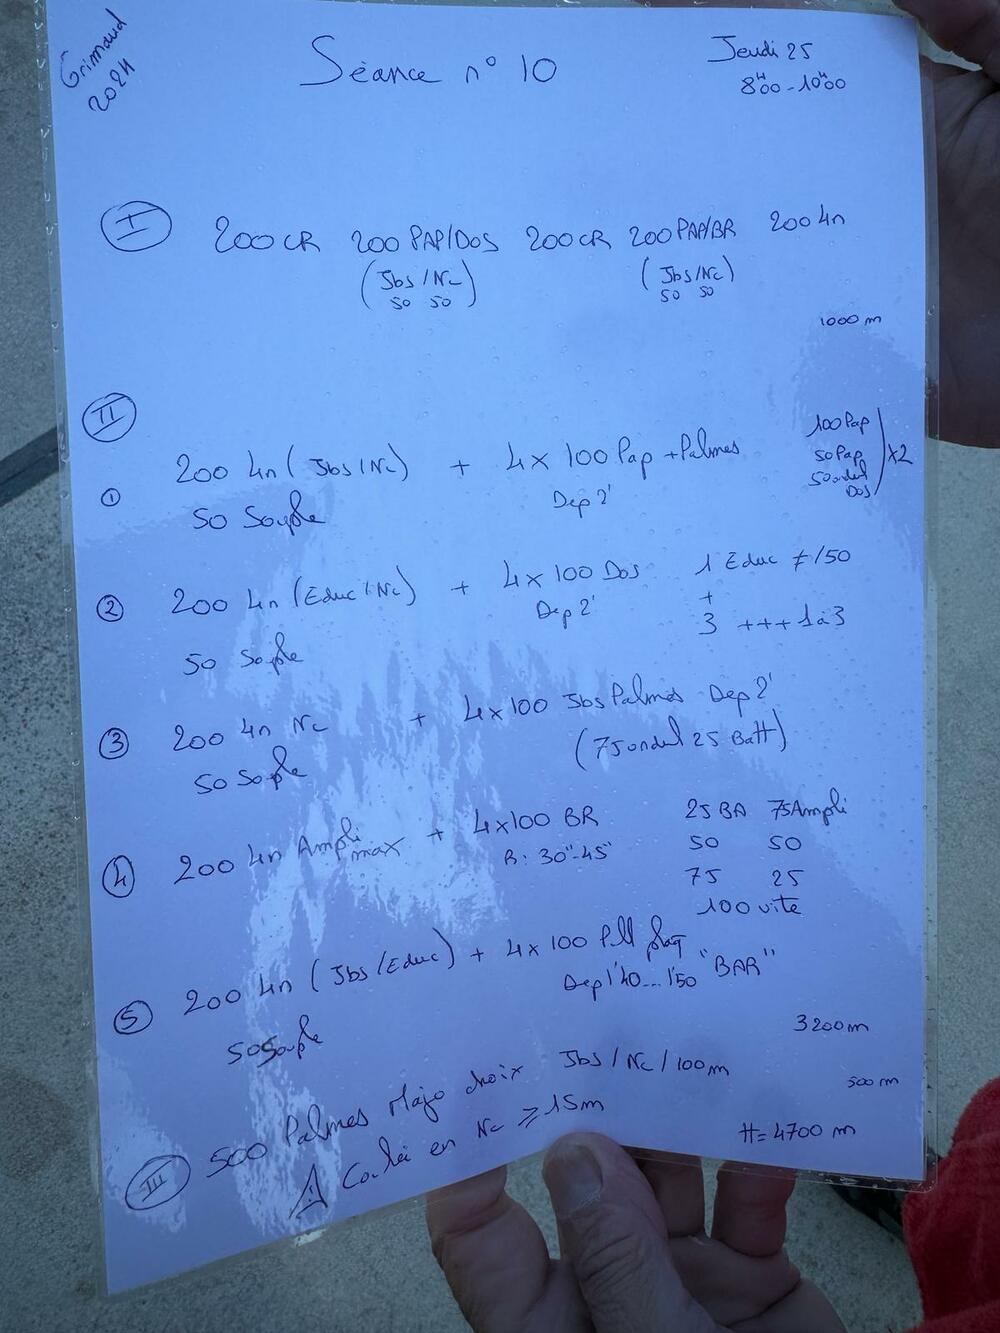 Grimaud
2024
Séance n° 10
Jeudi 25
8H00 - 10H00
I
200 CR 200 PAP/DOS 200 CR 200 PAP/BR 200 4n
(Jbs/Nc) (Jbs/Nc)
50 50 50 50
1000 m
II
① 200 4n (Jbs/Nc) + 4x 100 Pap + Palmes
50 Souple Dep 2'
100 Pap
50 Pap
50 ondul
Dos
x2
② 200 4n (Educ/Nc) + 4x 100 Dos 1 Educ ≠/50
Dep 2' +
50 Souple 3 +++ 1 à 3
③ 200 4n Nc + 4x100 Jbs Palmes Dep 2'
50 Souple (75 ondul 25 Batt)
④ 200 4n Ampli max + 4x100 BR 25 BA 75 Ampli
R: 30"-45" 50 50
75 25
100 vite
⑤ 200 4n (Jbs/Educ) + 4x 100 Pull plaq
50 Souple Dep 1'40...1'50 "BAR"
3200 m
III 500 Palmes Majo choix Jbs/Nc/100m
500 m
⚠ Coulée en Nc ⩾ 15m
H= 4700 m